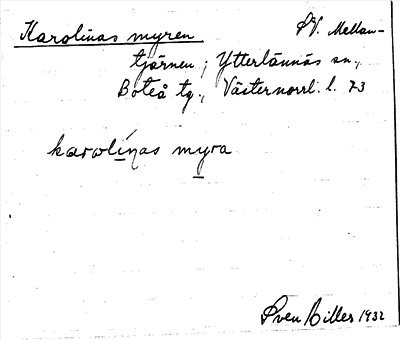 Karolinas myren SV. Mellan-
tjärnen; Ytterlännäs sn.,
Boteå tg., Västernorrl. l. 73
karolínas myra
Sven Billes 1932